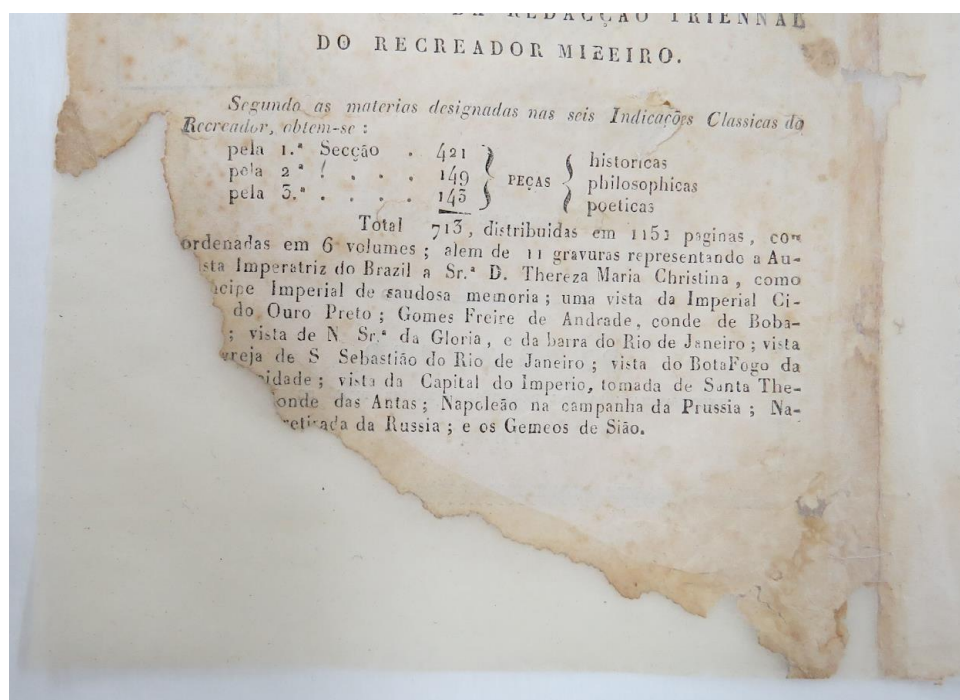 DA REDACÇÃO TRIENNAL
DO RECREADOR MINEIRO.
Segundo as materias designadas nas seis Indicações Classicas do
Recreador, obtem-se :
pela 1.ª Secção . 421 } PEÇAS { historicas
pela 2ª . . . . 149 philosophicas
pela 3.ª . . . . 143 poeticas
Total 713, distribuidas em 1152 paginas, co-
ordenadas em 6 volumes ; alem de 11 gravuras representando a Au-
sta Imperatriz do Brazil a Sr.ª D. Thereza Maria Christina, como
ncipe Imperial de saudosa memoria ; uma vista da Imperial Ci-
do Ouro Preto ; Gomes Freire de Andrade, conde de Boba-
; vista de N Sr.ª da Gloria, e da barra do Rio de Janeiro ; vista
greja de S Sebastião do Rio de Janeiro ; vista do BotaFogo da
idade ; vista da Capital do Imperio, tomada de Santa The-
onde das Antas ; Napoleão na campanha da Prussia ; Na-
retirada da Russia ; e os Gemeos de Sião.